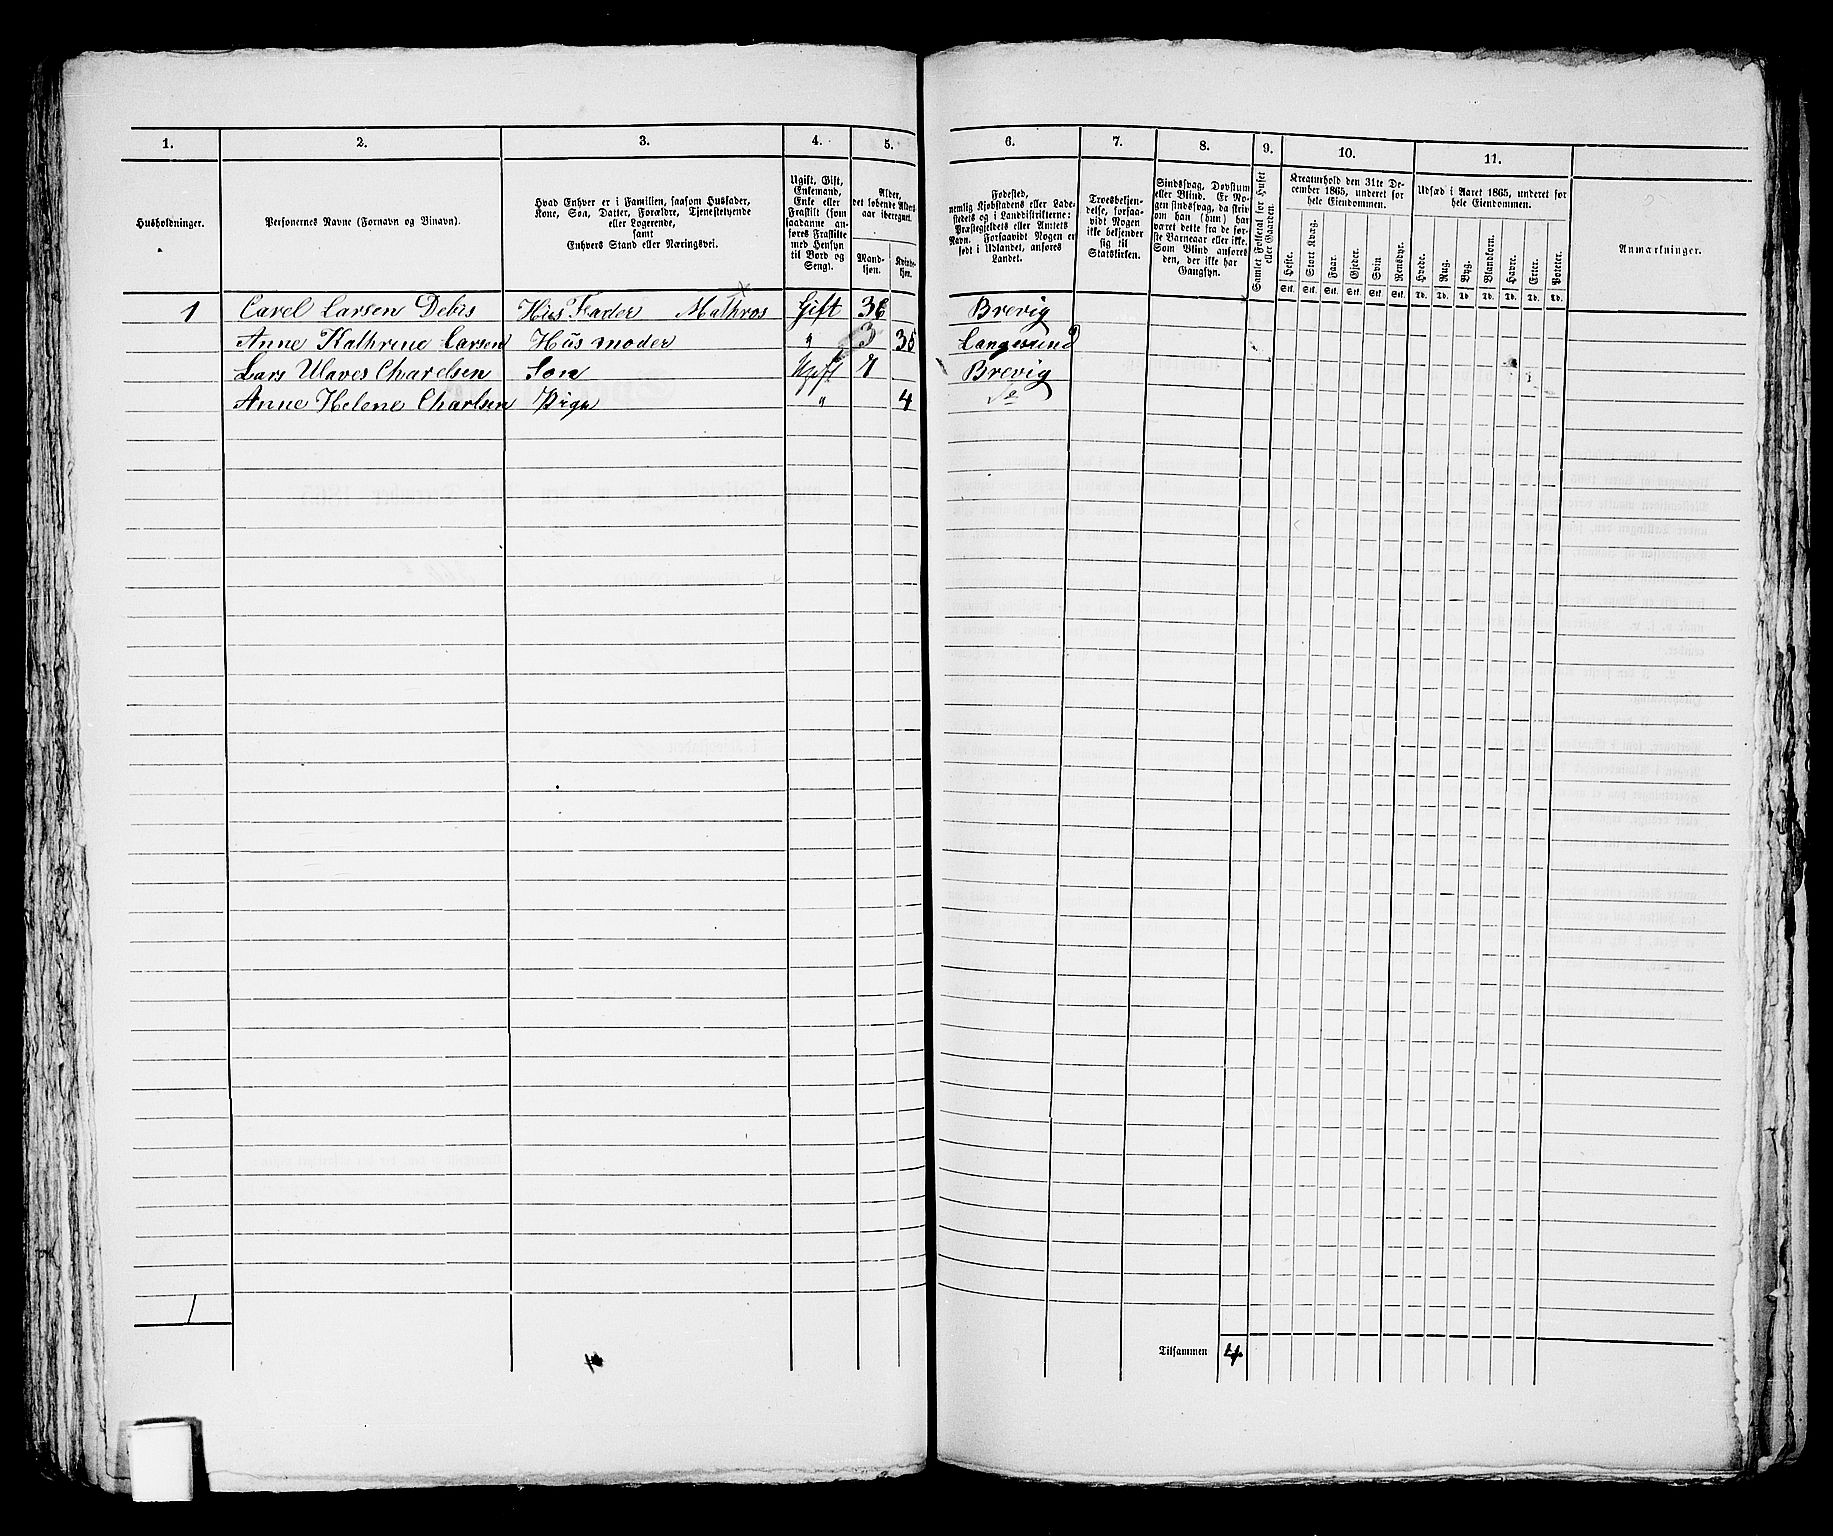 1. 2. 3. 4. 5. 6. 7. 8. 9. 10. 11.
Husholdninger.
Personernes Navne (Fornavn og Binavn).
Hvad Enhver er i Familien, saasom Husfader,
Kone, Søn, Datter, Forældre, Tjenestetyende
eller Logerende,
samt
Enhvers Stand eller Næringsvei.
Ugift, Gift,
Enkemand,
Enke eller
Fraskilt (som
saadanne an-
føres Fraskilte
med Hensyn
til Bord og
Seng).
Alder,
det løbende Alders-
aar iberegnet.
Mand-
kjøn.
Kvinde-
kjøn.
Fødested,
nemlig Kjøbstadens eller Lade-
stedets og i Landdistrikterne:
Præstegjeldets eller Amtets
Navn. Forsaavidt Nogen er
født i Udlandet, anføres
Landet.
Troesbekjen-
delse, forsaa-
vidt Nogen
ikke bekjender
sig til
Statskirken.
Sindssvag, Døvstum
eller Blind. Er No-
gen sindssvag, da skriv
om han (hun) har
været dette fra de før-
ste Barneaar eller ikke.
Som Blind anføres
den, der ikke har
Gangsyn.
Samlet Folketal for Huset
eller Gaarden.
Kreaturhold den 31te De-
cember 1865, underet for
hele Eiendommen.
Heste. Stort Kvæg. Faar. Gjeder. Svin. Rensdyr.
Stk. Stk. Stk. Stk. Stk. Stk.
Udsæd i Aaret 1865, underet for
hele Eiendommen.
Hvede. Rug. Byg. Blandkorn. Havre. Erter. Poteter.
Td. Td. Td. Td. Td. Td. Td.
Anmærkninger.
1 Carel Larsen Debes Hús Fader Mathros Gift 36 Brevig
Anne Kathrine Larsen Húsmoder " 35 Langesund
Lars Ulaves Charelsen Søn Ugift 1 Brevig
Anne Helene Charlsen Pige " 4
1
Tilsammen 4.